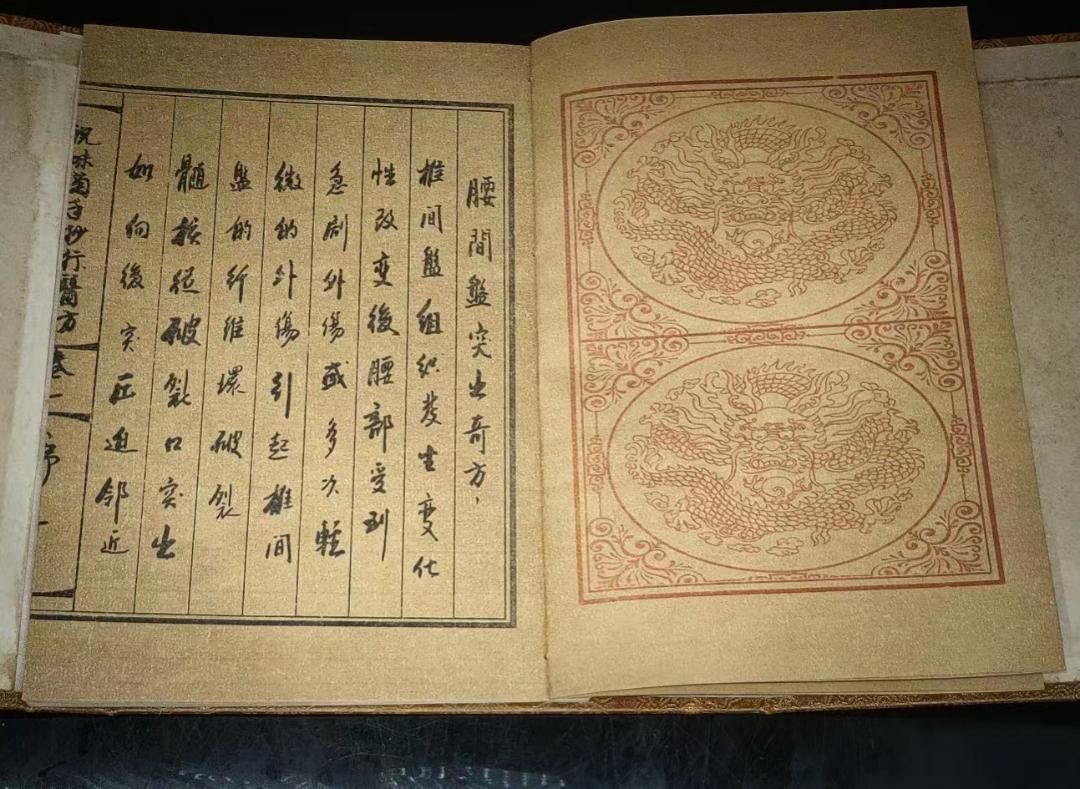 腰間盤突出奇方，
椎间盤组织发生变化
性改变後腰部受到
急剧外傷或多次輕
微的外傷引起椎间
盤的纤维環破裂
髓核從破裂口突出
如向後突压迫邻近
祝味菊手抄行醫方 卷一 序 一